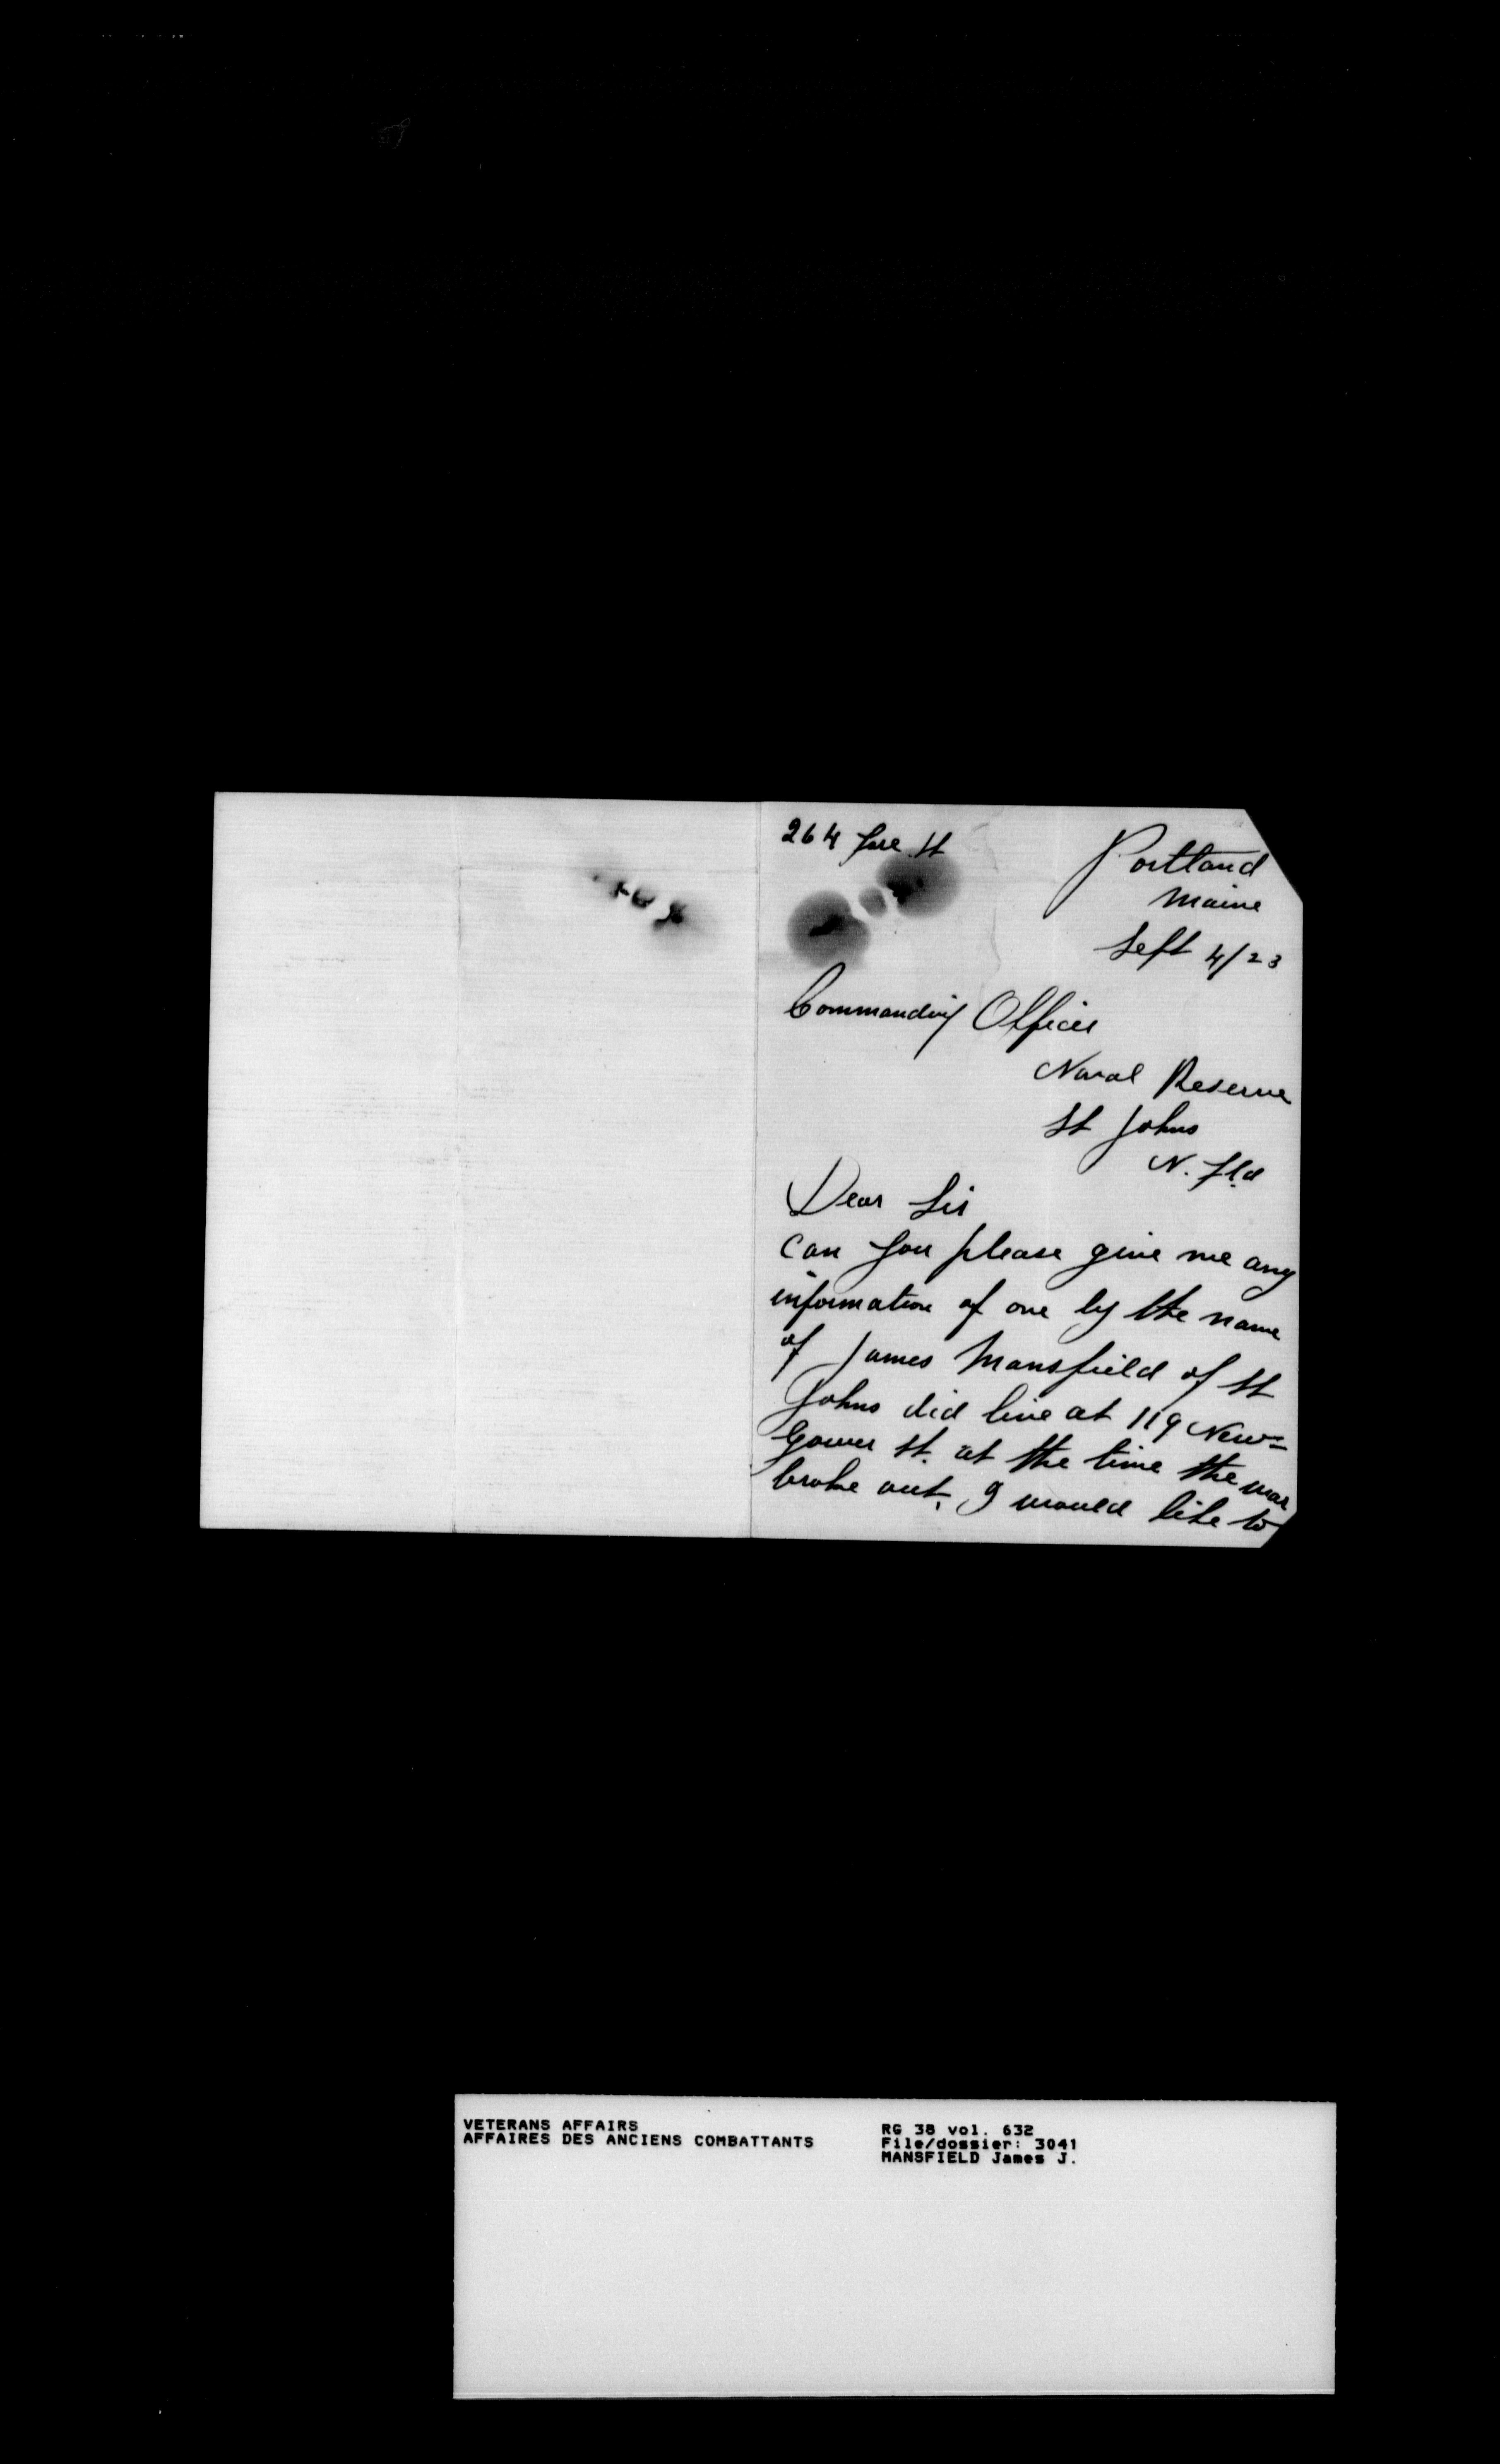 264 Fore St
Portland
Maine
Sept 4/23
Commanding Officer
Naval Reserve
St Johns
N. Fld
Dear Sir
Can you please give me any
information of one by the name
of James Mansfield of St
Johns did live at 119 New=
Gower St. at the time the war
broke out, I would like to
VETERANS AFFAIRS
AFFAIRES DES ANCIENS COMBATTANTS
RG 38 vol. 632
File/dossier: 3041
MANSFIELD James J.